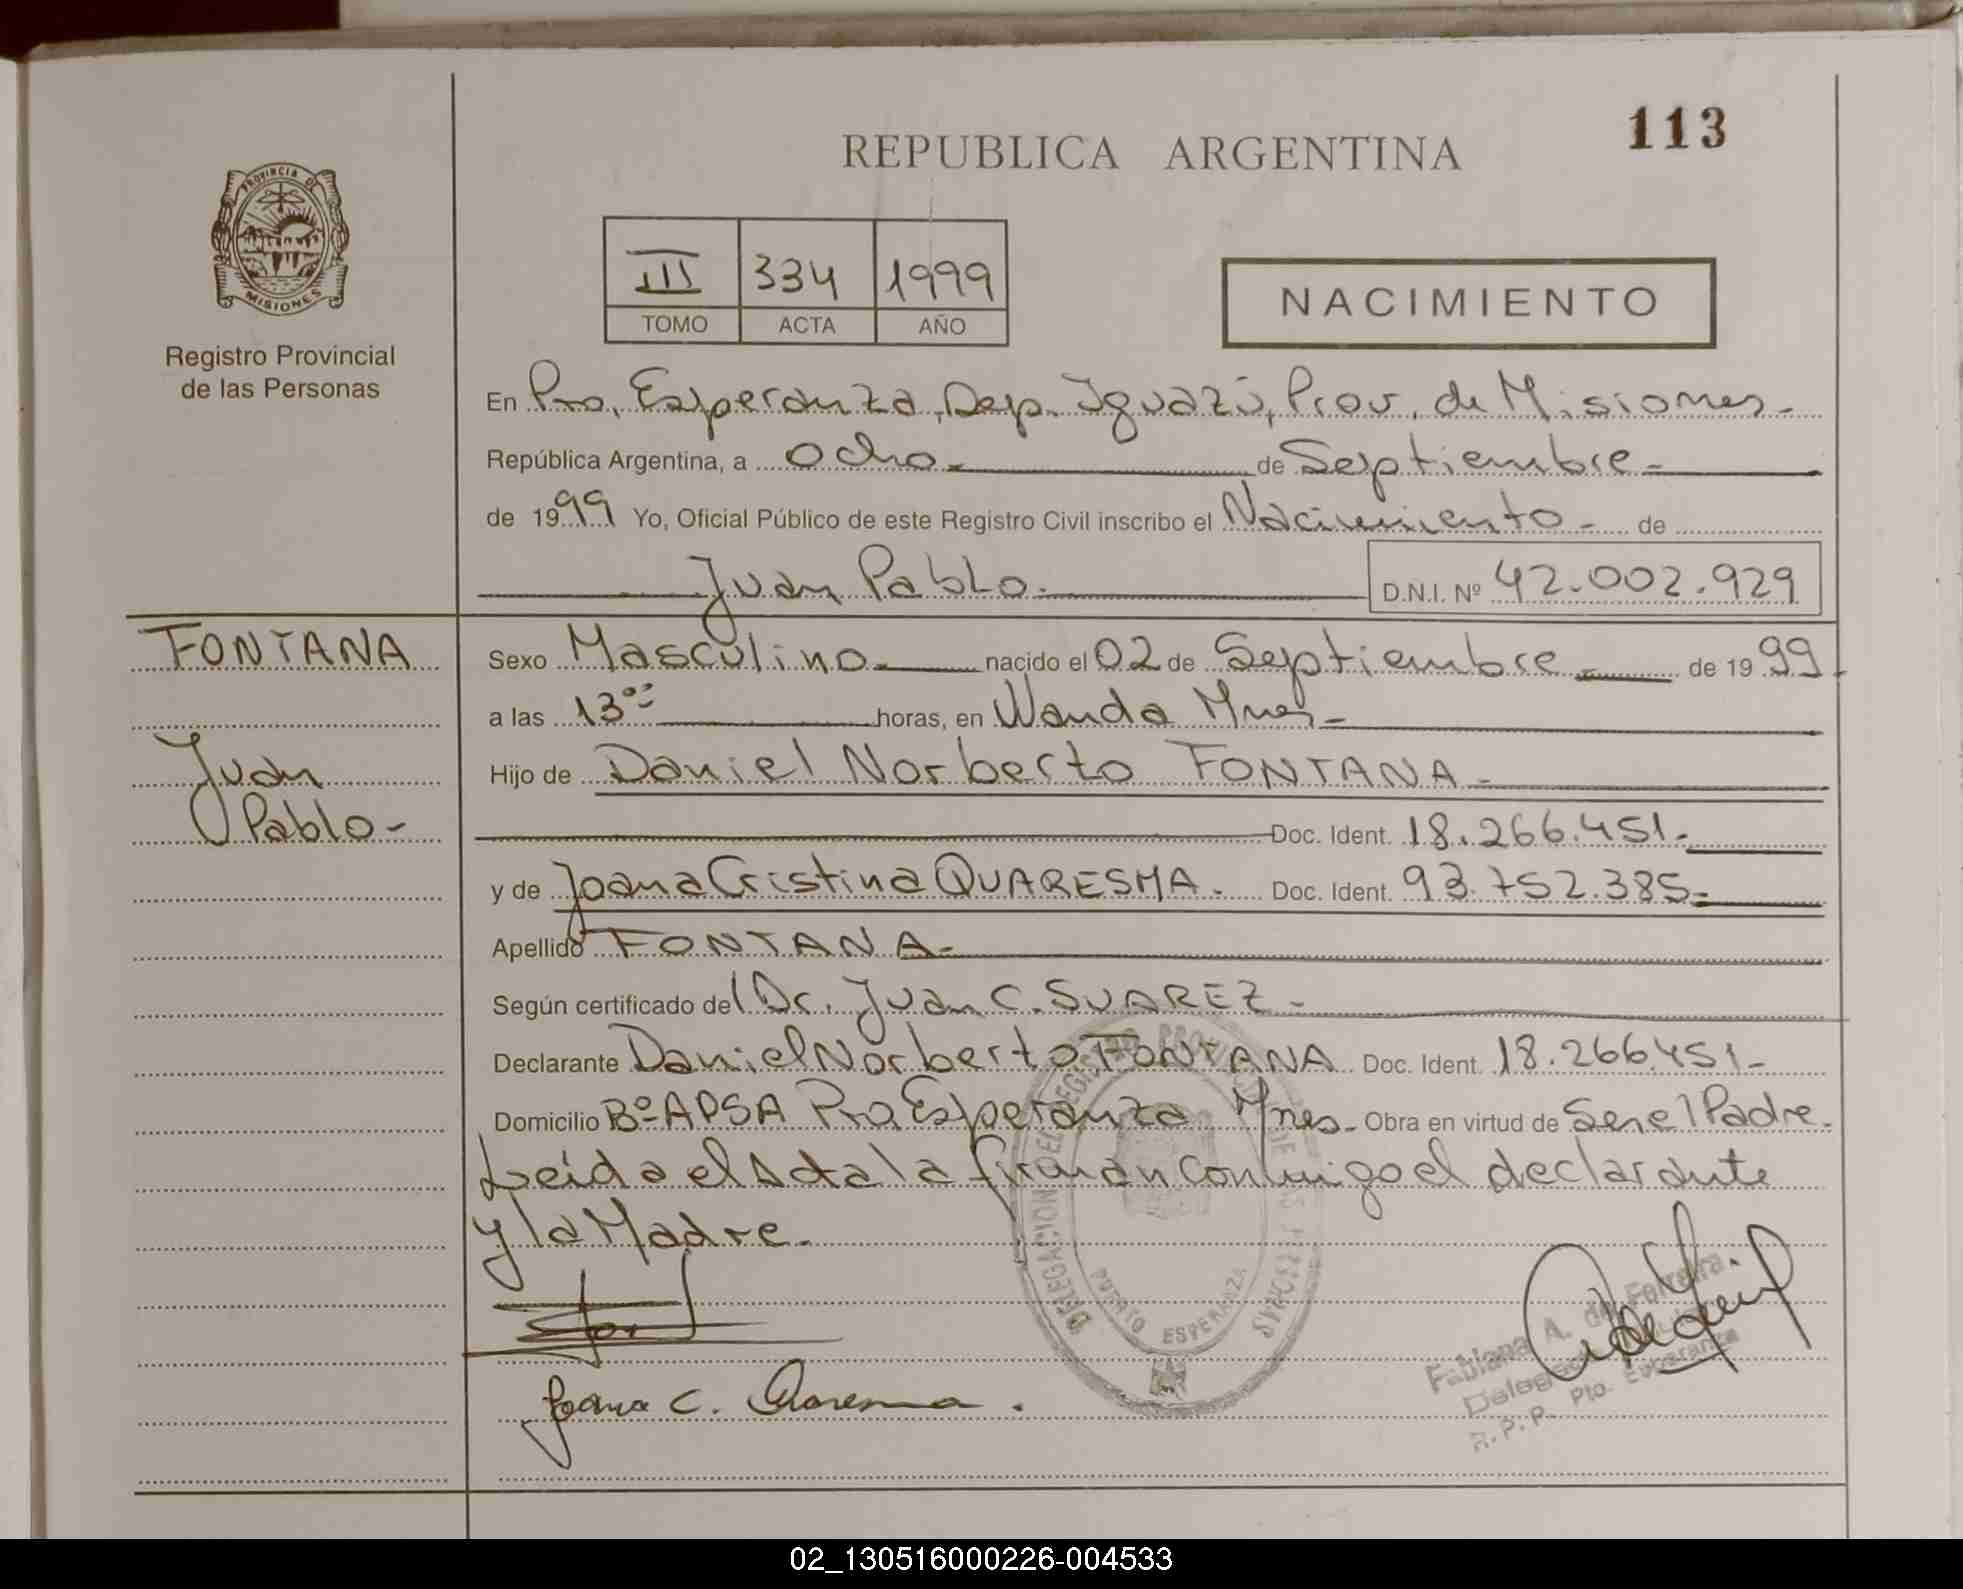 113
REPUBLICA ARGENTINA
PROVINCIA DE
MISIONES
Registro Provincial
de las Personas
III 334 1999
TOMO ACTA AÑO
NACIMIENTO
En Pto. Esperanza, Dep. Iguazú, Prov. de Misiones.-
República Argentina, a ocho.- de Septiembre.-
de 1999 Yo, Oficial Público de este Registro Civil inscribo el Nacimiento.- de
Juan Pablo.- D.N.I. Nº 42.002.929
FONTANA
Juan
Pablo.-
Sexo Masculino.- nacido el 02 de Septiembre.- de 1999.
a las 13ºº horas, en Wanda Mnes.-
Hijo de Daniel Norberto FONTANA.-
Doc. Ident. 18.266.451.-
y de Joana Cristina QUARESMA.- Doc. Ident. 93.752.385.-
Apellido FONTANA.-
Según certificado del Dr. Juan C. SUAREZ.-
Declarante Daniel Norberto FONTANA Doc. Ident. 18.266.451.-
Domicilio Bº APSA Pto Esperanza Mnes.- Obra en virtud de Ser el Padre.
Leida el Acta la firman conmigo el declarante
y la Madre.-
DELEGACION DEL REGISTRO PROVINCIAL DE LAS PERSONAS
PUERTO ESPERANZA
Joana C. Quaresma.
Fabiana A. de Ferreira
R.P.P. Pto. Esperanza
02_130516000226-004533